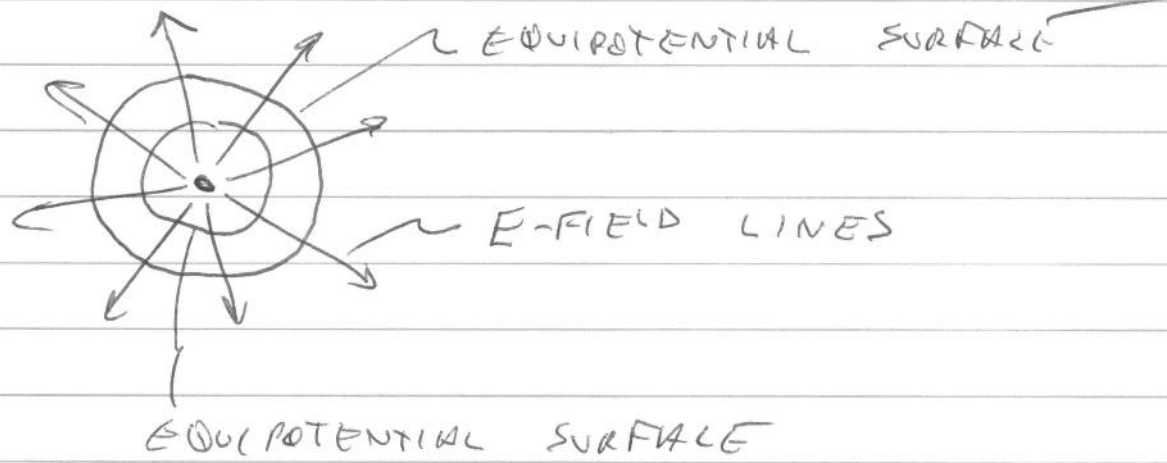 EQUIPOTENTIAL SURFACE
E-FIELD LINES
EQUIPOTENTIAL SURFACE